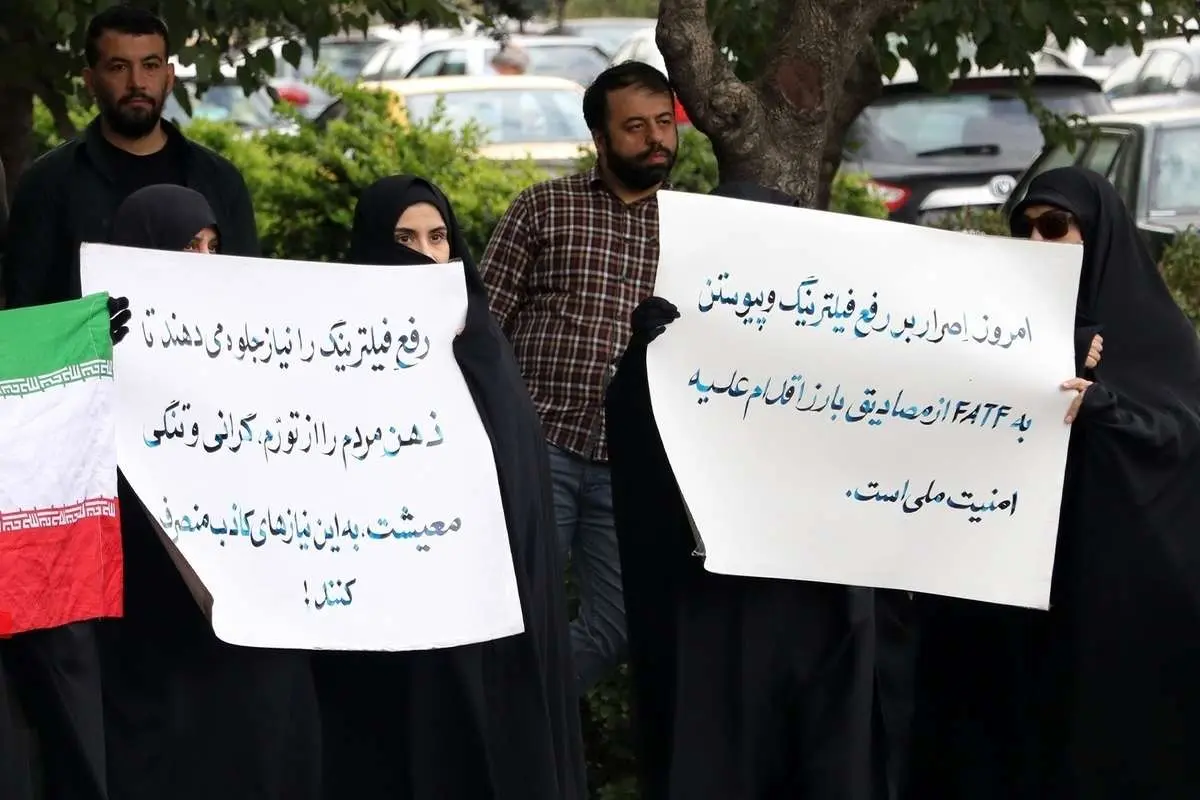 امروز اصرار بر رفع فیلترینگ و پیوستن
به FATF از مصادیق بارز اقدام علیه
امنیت ملی است.
رفع فیلترینگ را نیاز جلوه می دهند تا
ذهن مردم را از تورّم، گرانی و تنگی
معیشت، به این نیازهای کاذب منصرف
کنند!